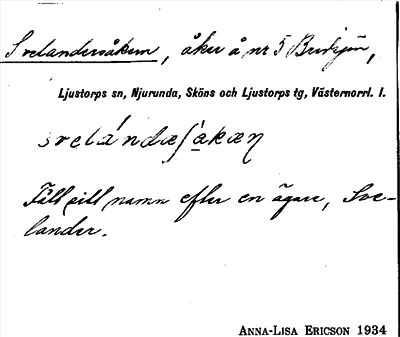 Svelandersåkern, åker å nr 5 Bredsjön,
Ljustorps sn, Njurunda, Sköns och Ljustorps tg, Västernorrl. l.
svelándæʃàkæɳ
Fått sitt namn efter en ägare, Sve-
lander.
ANNA-LISA ERICSON 1934